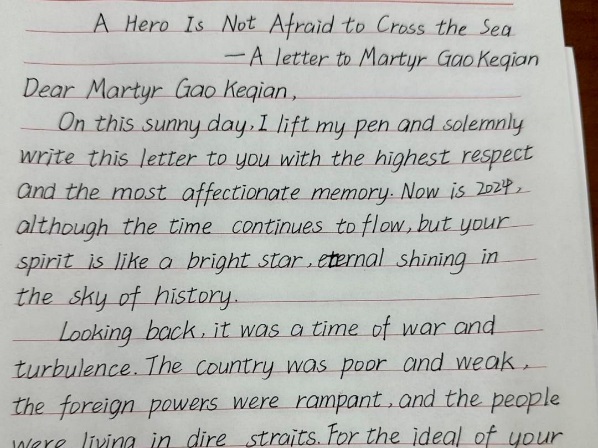 A Hero Is Not Afraid to Cross the Sea
—A letter to Martyr Gao Keqian
Dear Martyr Gao Keqian,
On this sunny day, I lift my pen and solemnly
write this letter to you with the highest respect
and the most affectionate memory. Now is 2024,
although the time continues to flow, but your
spirit is like a bright star, eternal shining in
the sky of history.
Looking back, it was a time of war and
turbulence. The country was poor and weak,
the foreign powers were rampant, and the people
were living in dire straits. For the ideal of your